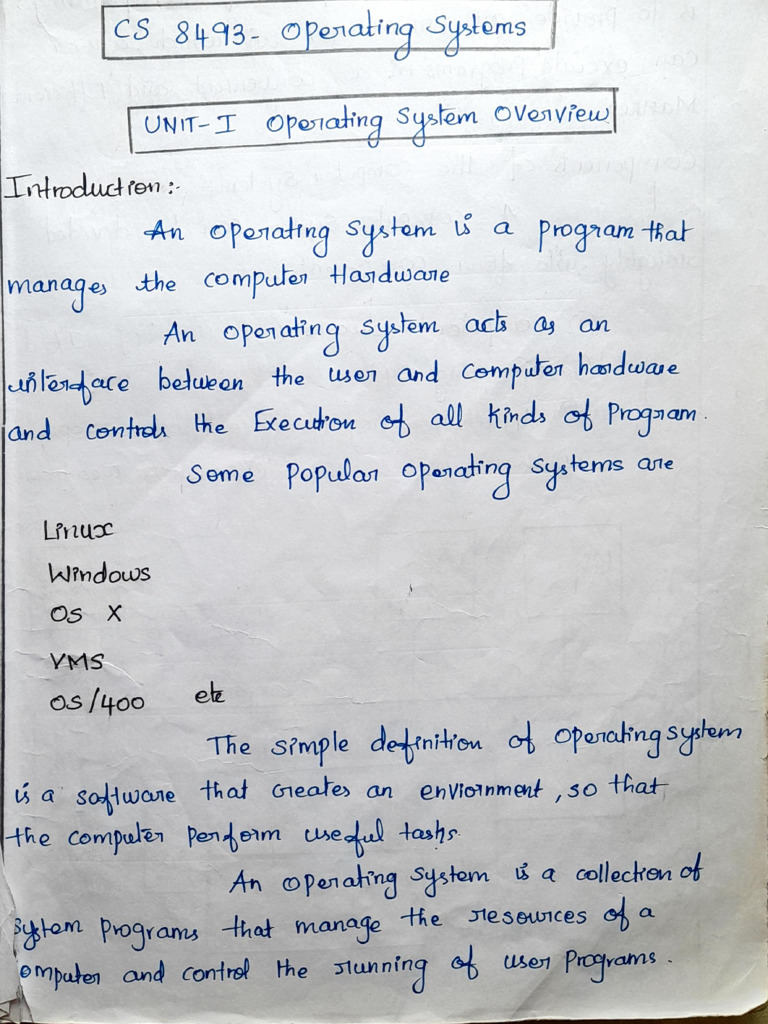 CS 8493- Operating Systems
UNIT-I Operating System Overview
Introduction:-
An operating system is a program that
manages the computer Hardware
An operating system acts as an
interface between the user and computer hardware
and controls the Execution of all kinds of Program.
Some Popular operating systems are
Linux
Windows
OS X
VMS
OS/400 etc
The simple definition of operating system
is a software that creates an enviornment, so that
the computer perform useful tasks.
An operating system is a collection of
system programs that manage the resources of a
omputer and control the running of user Programs.